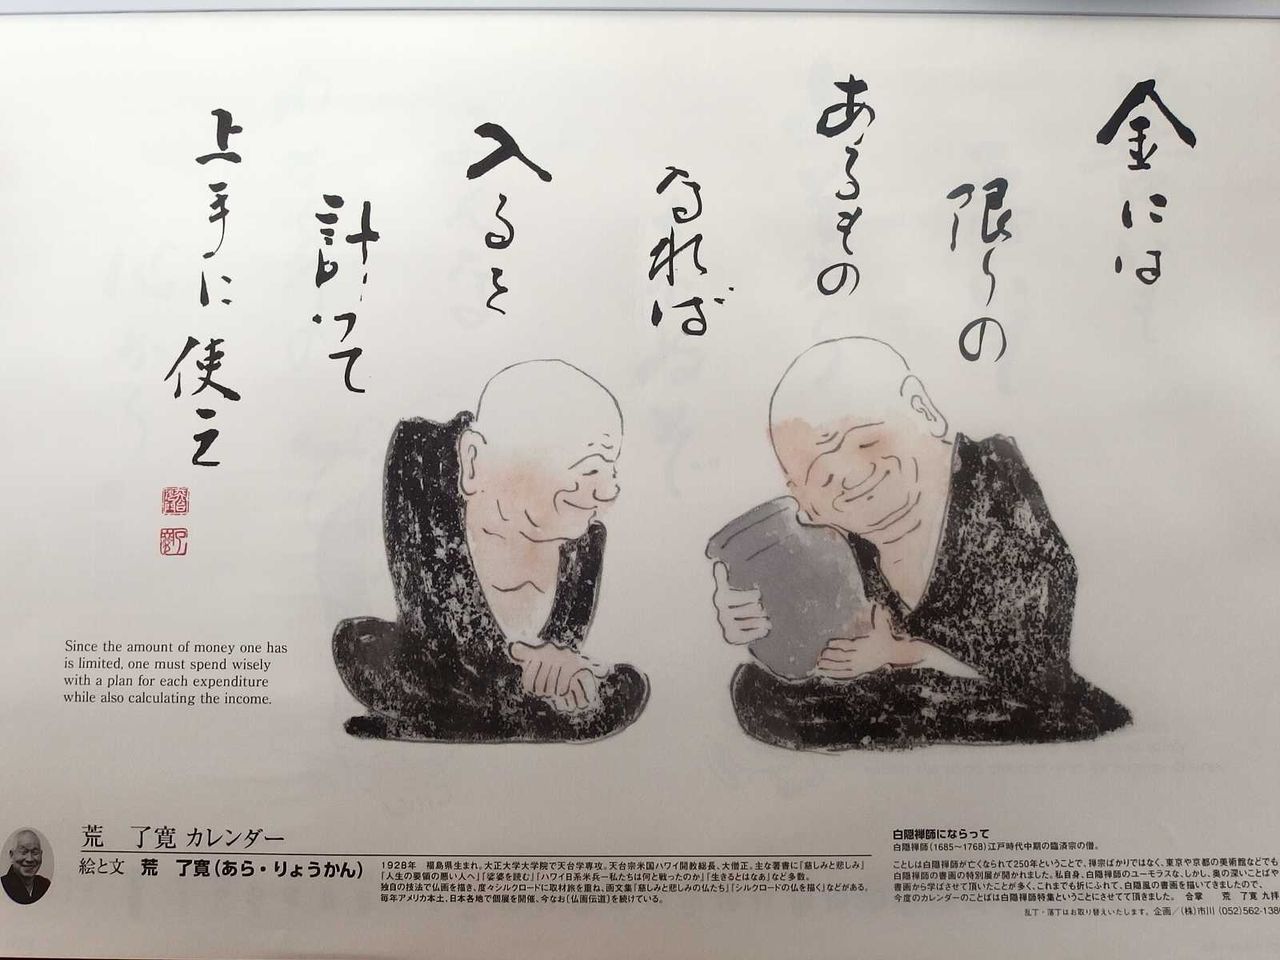 金には
限りの
あるもの
なれば
入ると
計って
上手に使え
Since the amount of money one has
is limited, one must spend wisely
with a plan for each expenditure
while also calculating the income.
荒 了寛 カレンダー
絵と文 荒 了寛(あら・りょうかん)
1928年 福島県生まれ。大正大学大学院で天台学専攻。天台宗米国ハワイ開教総長、大僧正。主な著書に「慈しみと悲しみ」
「人生の要領の悪い人へ」「娑婆を読む」「ハワイ日系米兵ー私たちは何と戦ったのか」「生きるとはなあ」など多数。
独自の技法で仏画を描き、度々シルクロードに取材旅を重ね、画文集「慈しみと悲しみの仏たち」「シルクロードの仏を描く」などがある。
毎年アメリカ本土、日本各地で個展を開催、今なお〔仏画伝道〕を続けている。
白隠禅師にならって
白隠禅師(1685〜1768)江戸時代中期の臨済宗の僧。
ことしは白隠禅師が亡くなられて250年ということで、禅宗ばかりではなく、東京や京都の美術館などでも
白隠禅師の書画の特別展が開かれました。私自身、白隠禅師のユーモラスな、しかし、奥の深いことばや
書画から学ばさせて頂いたことが多く、これまでも折にふれて、白隠風の書画を描いてきましたので、
今度のカレンダーのことばは白隠禅師特集ということにさせてて頂きました。 合掌 荒 了寛 九拝
乱丁・落丁はお取り替えいたします。企画/(株)市川 (052)562-138